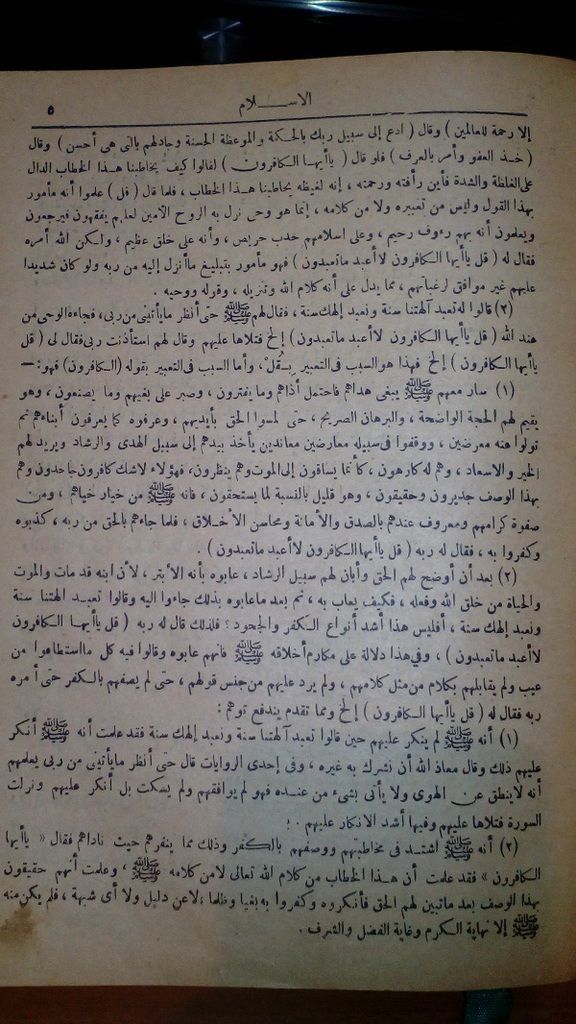 الاســـلام ٥
إلا رحمة للعالمين ) وقال ( ادع إلى سبيل ربك بالحكمة والموعظة الحسنة وجادلهم بالتى هى أحسن ) وقال
( خذ العفو وأمر بالعرف ) فلو قال ( ياأيها الكافرون ) لقالوا كيف يخاطبنا هذا الخطاب الدال
على الغلظة والشدة فأين رأفته ورحمته ، إنه لغيظه يخاطبنا هذا الخطاب ، فلما قال ( قل ) علموا أنه مأمور
بهذا القول وليس من تعبيره ولا من كلامه ، إنما هو وحى نزل به الروح الأمين لعلهم يفقهون فيرجعون
ويعلمون أنه بهم رءوف رحيم ، وعلى اسلامهم حدب حريص ، وأنه على خلق عظيم ، ولكن الله أمره
فقال له ( قل ياأيها الكافرون لاأعبد ماتعبدون ) فهو مأمور بتبليغ ماأنزل إليه من ربه ولو كان شديدا
عليهم غير موافق لرغباتهم ، مما يدل على أنه كلام الله وتنزيله ، وقوله ووحيه .
(٣) قالوا له تعبد آلهتنا سنة ونعبد إلهك سنة ، فقال لهم ﷺ حتى أنظر مايأتينى من ربى ، فجاءه الوحى من
عند الله ( قل ياأيها الكافرون لاأعبد ماتعبدون ) إلخ فتلاها عليهم وقال لهم استأذنت ربى فقال لى ( قل
ياأيها الكافرون ) إلخ فهذا هو السبب فى التعبير بـقل ، وأما السبب فى التعبير بقوله (الكافرون) فهو : —
(١) سار معهم ﷺ يبغى هداهم فاحتمل أذاهم وما يفترون ، وصبر على بغيهم وما يصنعون ، وهو
يقيم لهم الحجة الواضحة ، والبرهان الصريح ، حتى لمسوا الحق بأيديهم ، وعرفوه كما يعرفون أبناءهم ثم
تولوا عنه معرضين ، ووقفوا فى سبيله معارضين معاندين يأخذ بيدهم إلى سبيل الهدى والرشاد ويريد لهم
الخير والاسعاد ، وهم له كارهون ، كأنما يساقون إلى الموت وهم ينظرون ، فهؤلاء لاشك كافرون جاحدون وهم
بهذا الوصف جديرون وحقيقون ، وهو قليل بالنسبة لما يستحقون ، فانه ﷺ من خيار خياهم ، ومن
صفوة كرامهم ومعروف عندهم بالصدق والأمانة ومحاسن الأخلاق ، فلما جاءهم بالحق من ربه ، كذبوه
وكفروا به ، فقال له ربه ( قل ياأيها الكافرون لاأعبد ماتعبدون ) .
(٢) بعد أن أوضح لهم الحق وأبان لهم سبيل الرشاد ، عابوه بأنه الأبتر ، لأن ابنه قد مات والموت
والحياة من خلق الله وفعله ، فكيف يعاب به ، ثم بعد ماعابوه بذلك جاءوا اليه وقالوا تعبد الهتنا سنة
ونعبد إلهك سنة ، أفليس هذا أشد أنواع الكفر والجحود ؟ فلذلك قال له ربه ( قل ياأيها الكافرون
لاأعبد ماتعبدون ) ، وفى هذا دلالة على مكارم أخلاقه ﷺ فانهم عابوه وقالوا فيه كل مااستطاعوا من
عيب ولم يقابلهم بكلام من مثل كلامهم ، ولم يرد عليهم من جنس قولهم ، حتى لم يصفهم بالكفر حتى أمره
ربه فقال له ( قل ياأيها الكافرون ) إلخ ومما تقدم يندفع توهم :
(١) أنه ﷺ لم ينكر عليهم حين قالوا تعبد آلهتنا سنة ونعبد إلهك سنة فقد علمت أنه ﷺ أنكر
عليهم ذلك وقال معاذ الله أن نشرك به غيره ، وفى إحدى الروايات قال حتى أنظر مايأتينى من ربى يعلمهم
أنه لاينطق عن الهوى ولا يأتى بشىء من عنده فهو لم يوافقهم ولم يسكت بل أنكر عليهم ونزلت
السورة فتلاها عليهم وفيها أشد الانكار عليهم .
(٢) أنه ﷺ اشتد فى مخاطبتهم ووصفهم بالكفر وذلك مما ينفرهم حيث ناداهم فقال « ياأيها
الكافرون » فقد علمت أن هذا الخطاب من كلام الله تعالى لامن كلامه ﷺ ، وعلمت أنهم حقيقون
بهذا الوصف بعد ماتبين لهم الحق فأنكروه وكفروا به بغيا وظلما ، لاعن دليل ولا أى شبهة ، فلم يكن منه
ﷺ إلا نهاية الكرم وغاية الفضل والشرف .